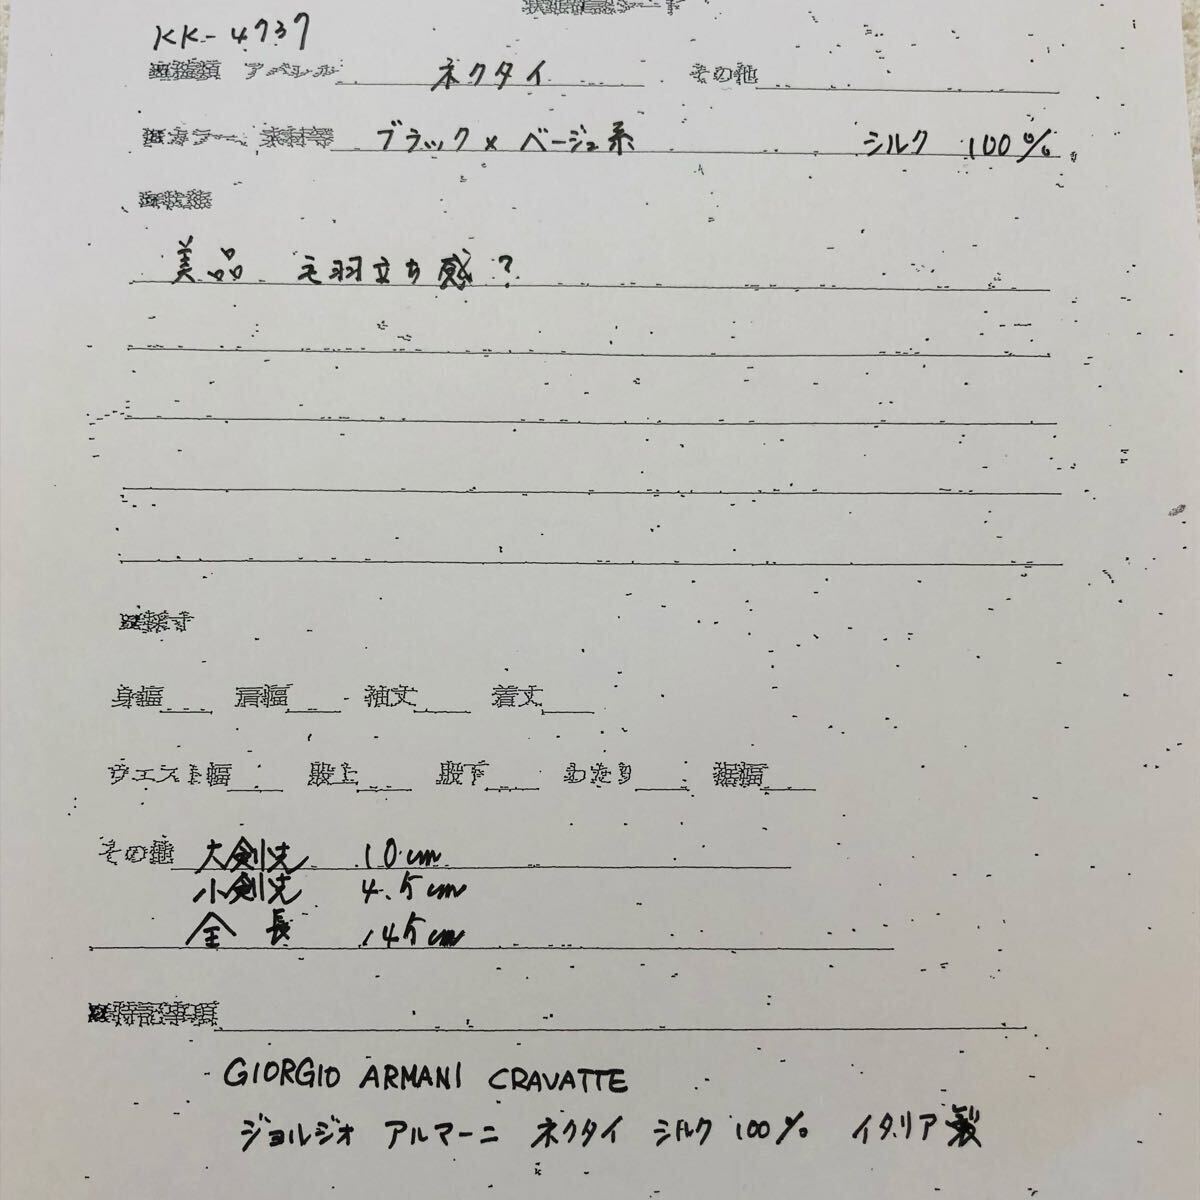 KK-4737
アパレル ネクタイ その他
カラー、素材等 ブラック×ベージュ系 シルク 100%
美品 毛羽立ち感?
採寸
身幅 肩幅 袖丈 着丈
ウエスト幅 股上 股下 わたり 裾幅
その他 大剣先 10cm
小剣先 4.5cm
全長 145cm
特記事項
GIORGIO ARMANI CRAVATTE
ジョルジオ アルマーニ ネクタイ シルク 100% イタリア製